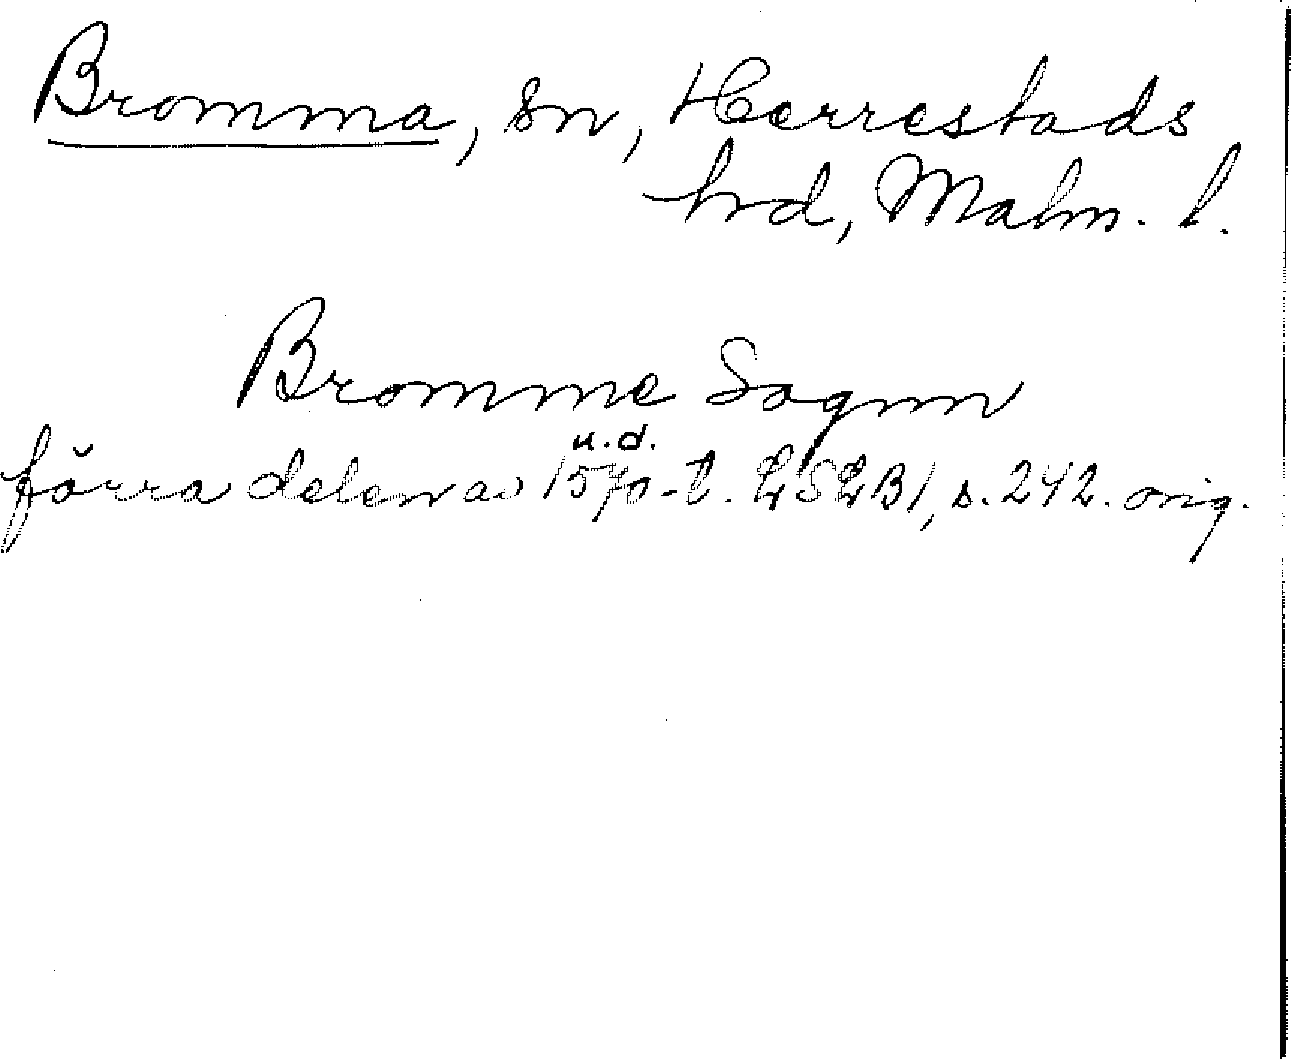 Bromma, sn, Herrestads
hrd, Malm. l.
Bromme Sognn
u.d.
förra delen av 1570-t. LSLB1, s. 242. orig.